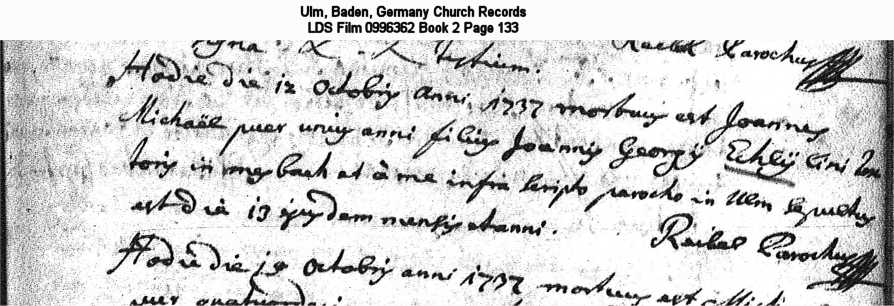 Ulm, Baden, Germany Church Records
LDS Film 0996362 Book 2 Page 133
testium. Raibel Parochus
Hodie die 12 octobris anni 1737 mortuus est Joannes
Michaël puer unius anni filius Joannis Georgÿ Echlÿ
toris in mesbach et à me infra scripto parocho in Ulm sepultus
est die 13 ejusdem mensis et anni.
Raibel Parochus
Hodie die octobris anni 1737 mortuus est
puer